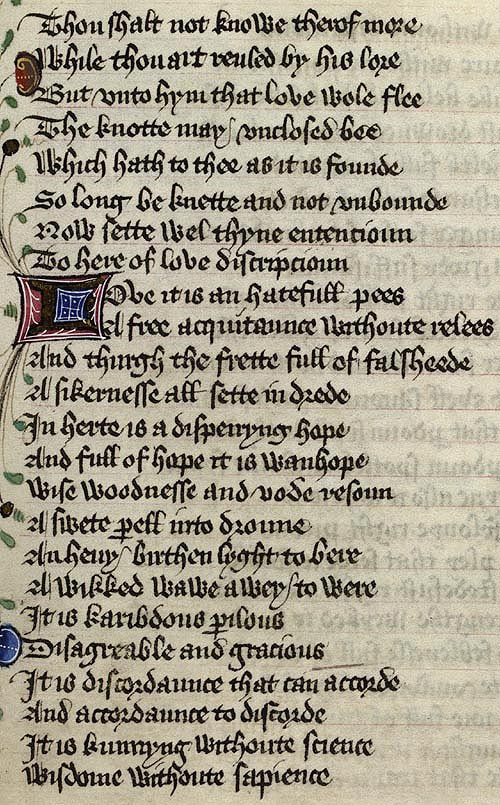 Thou shalt not knowe therof more
While thou art reuled by his lore
But vnto hym that love wole flee
The knotte may vnclosed bee
Which hath to thee as it is founde
So long be knette and not vnbounde
Now sette wel thyne entencioun
To here of love discripcioun
Love it is an hatefull pees
A free acquitaunce withoute relees
And thurgh the frette full of falsheede
A sikernesse all sette in drede
In herte is a dispeiryng hope
And full of hope it is wanhope
Wise woodnesse and vode resoun
A swete pell into droune
An heuy birthen lyght to bere
A wikked wawe awey to were
It is karibdous pilous
Disagreable and gracious
It is discordaunce that can accorde
And accordaunce to discorde
It is kunnyng withoute science
Wisdome withoute sapience